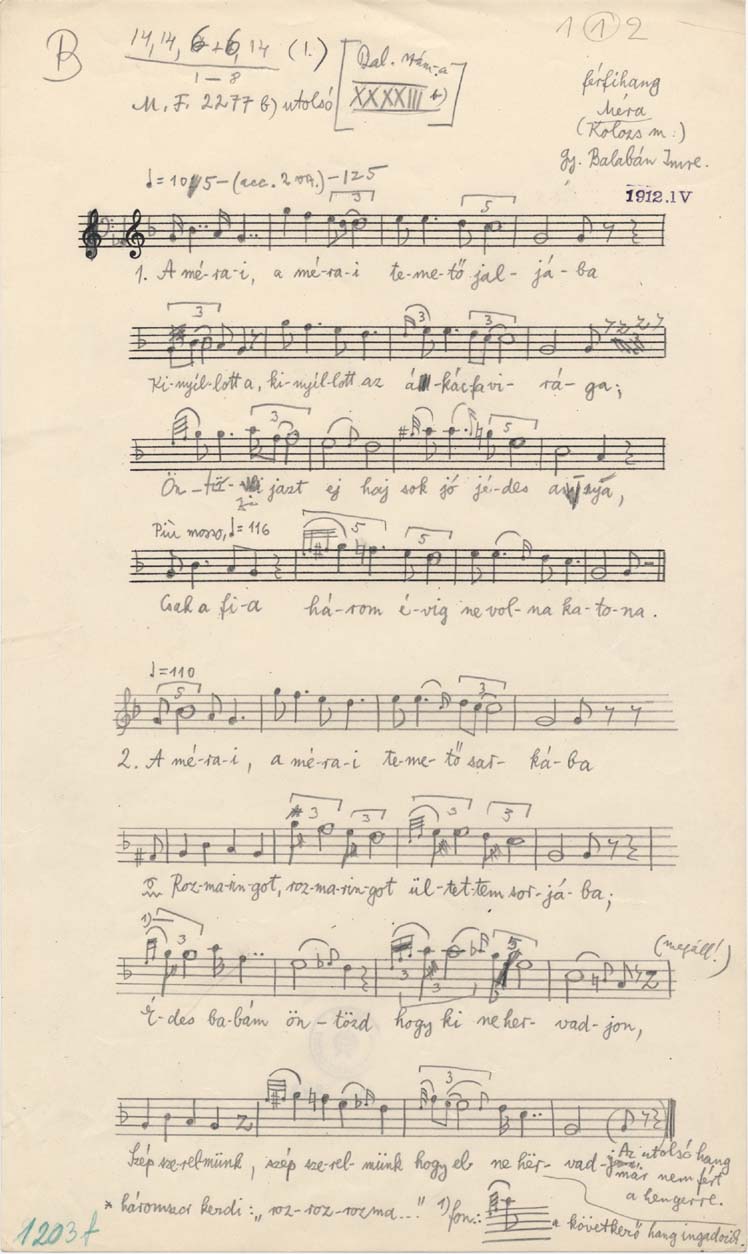 B
14, 14, 6+6, 14 (1.)
1 – 8
M. F. 2277 b) utolsó
Bal.
XXXXIII b)
1 1 2
férfihang
Méra
(Kolozs m.)
gy. Balabán Imre.
1912.IV
♩=105–(acc. 2 )–125
3 5
1. A mé-ra-i, a mé-ra-i te-me-tő jal- já-ba
3 3 3
Ki-nyíl-lott a, ki-nyíl-lott az á-kácfavi- rá-ga;
3 5
Ön-tö-zi jazt ej haj sok jó jé-des anyja,
Più mosso, ♩=116
5 5
Csak a fi-a há-rom é-vig ne vol-na ka-to-na.
♩=110
5 3
2. A mé-ra-i, a mé-ra-i te-me-tő sar- ká-ba
* 3 3 3 3
Roz-ma-rin-got, roz-ma-rin-got ül-tet-tem sor-já-ba;
1) 3 3 3 5 (megáll!)
É-des ba-bám ön-tözd hogy ki ne her- vad-jon,
3
Szép sze-rel-münk, szép sze-rel-münk hogy el ne her- vad-jon.
Az utolsó hang
már nem fért
a hengerre.
* háromszor kezdi: „roz-roz-rozma..." 1) fon.: a következő hang ingadozik.
1203f